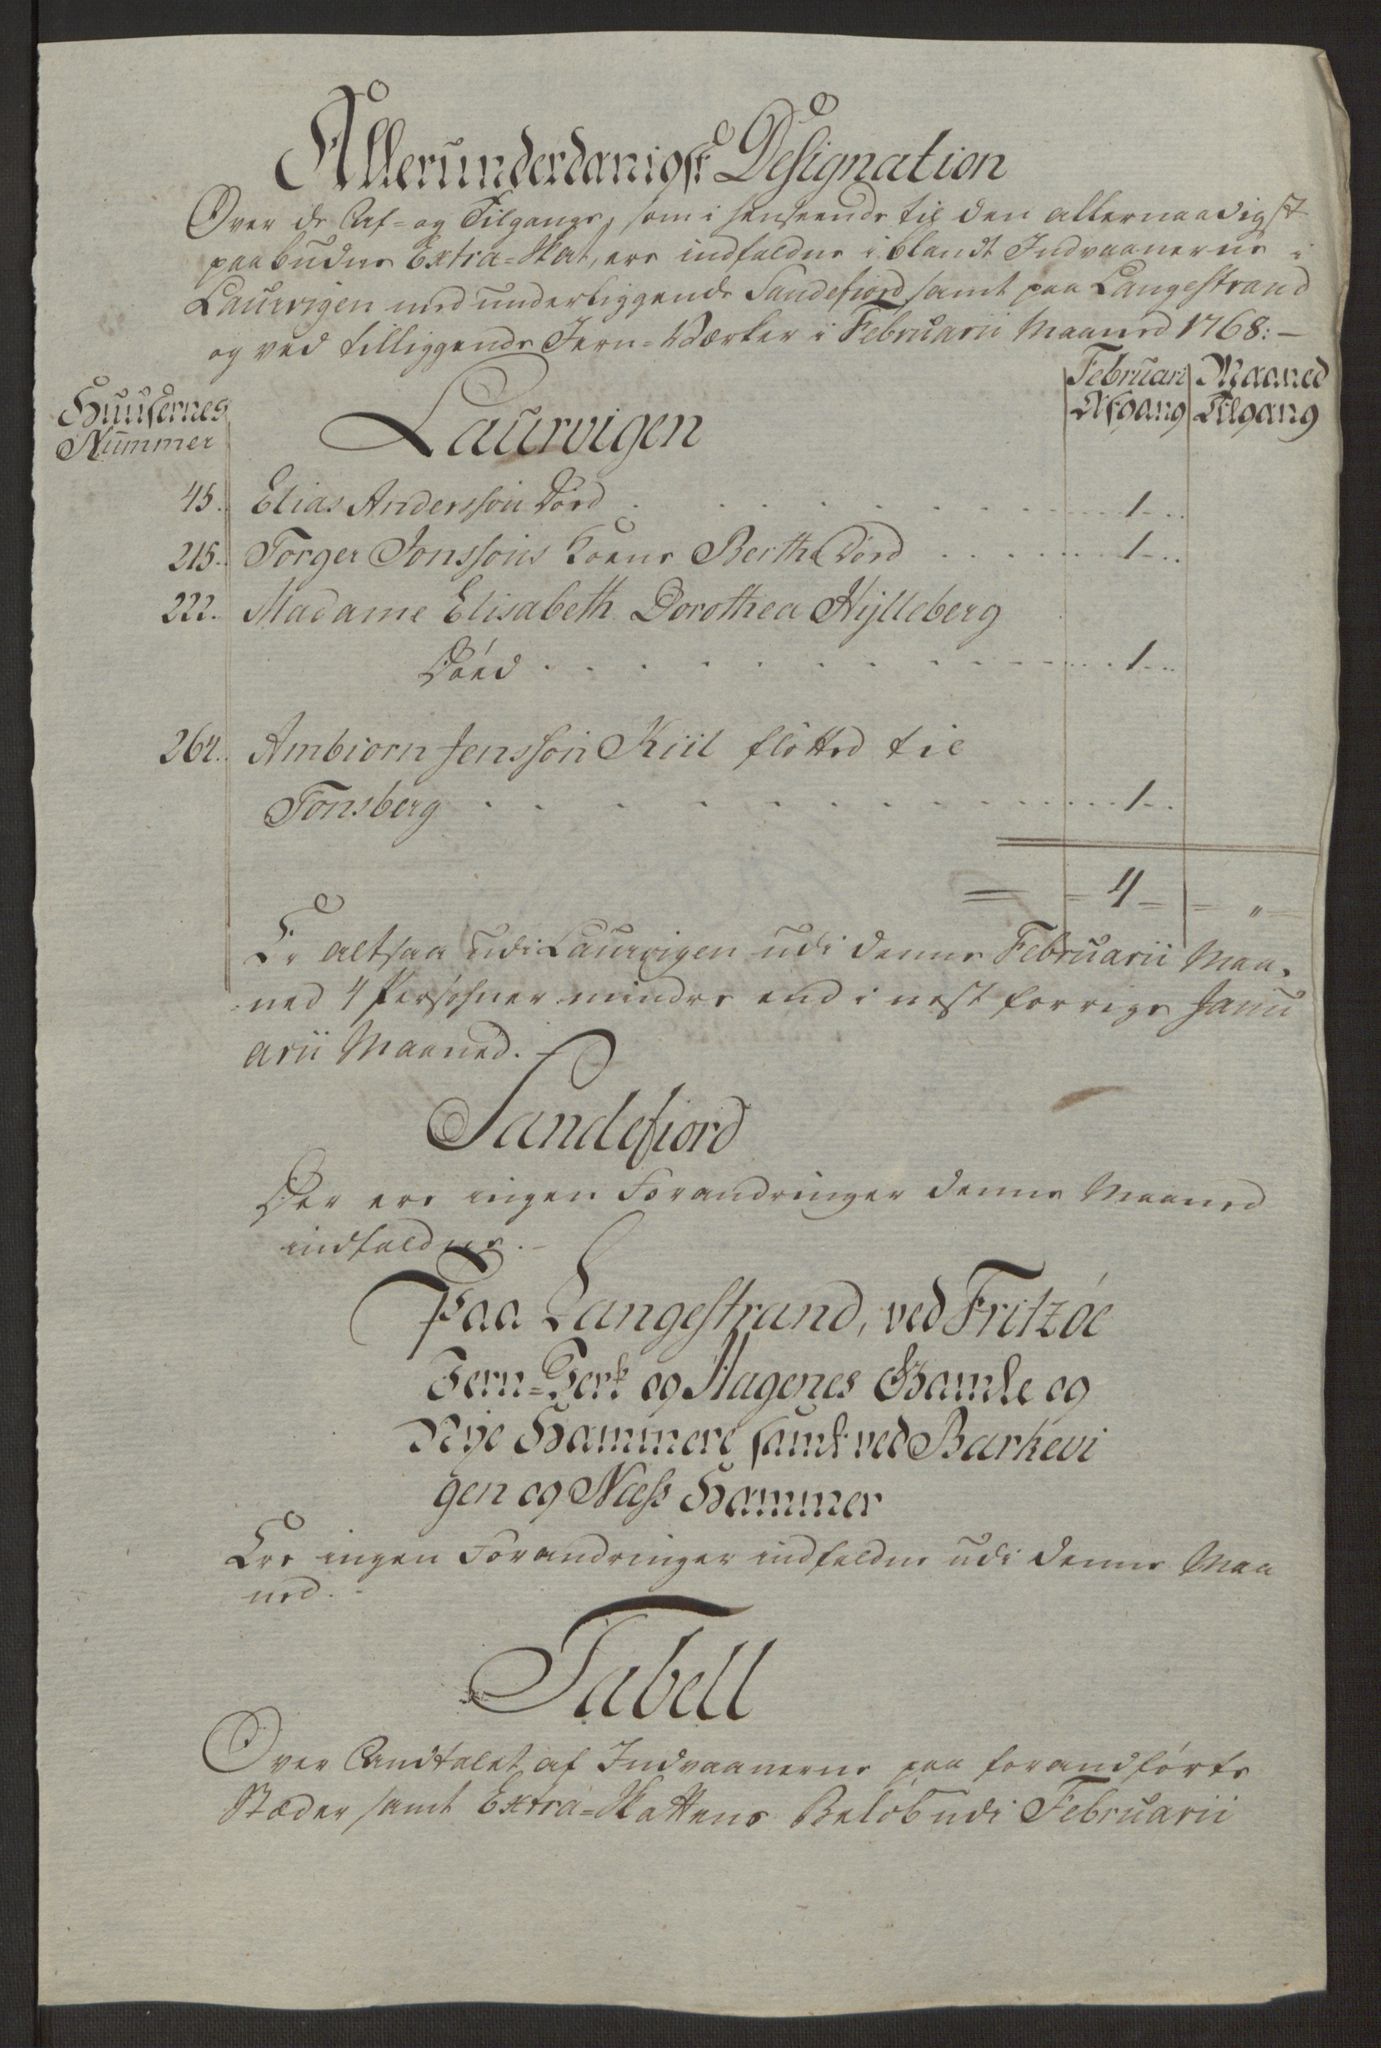 Allerunderdanigst Designation
Over de Af- og Tilgange, som i henseende til den allernaadigst
paabudne Extra-Skat, ere indfaldne iblandt Indvaanerne i
Laurvigen med underliggende Sandefiord samt paa Langestrand
og ved tilliggende Jern-Værker i Februarii Maaned 1768:-
Huusernes Nummer
Laurvigen
Februari Maaned
Afgang Tilgang
45. Elias Anderssøn Død . . . 1 . .
215. Torger Jonssøns Kone Berthe Død . . . 1 . .
222. Madame Elisabeth Dorothea Hylleberg
Död . . . 1 . .
264. Ambiorn Jenssøn Kiil flötted til
Tonsberg . . . 1 . .
= = 4 = = " =
Er altsaa udi Laurvigen udi denne Februarii Maa-
ned 4 Persohner mindre end i nest forrige Janu
arii Maaned.-
Sandefiord
Der ere ingen Forandringer denne Maaned
indfaldne.-
Paa Langestrand, ved Fritzöe
Jern-Verk og Hagenes Gamle og
Nye Hammere samt ved Barkevi
gen og Næss Hammer
Ere ingen Forandringer indfaldne udi denne Maa
ned.-
Tabell
Over Andtalet af Indvaanerne paa forandførte
Stæder samt Extra-Skattens Beløb udi Februarii